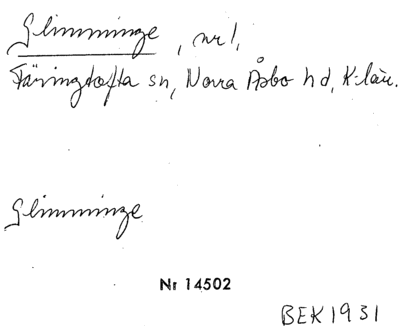 Glimminge, nr 1,
Färingtofta sn, Norra Åsbo hd, K-län.
Glimminge
Nr 14502
BEK 1931